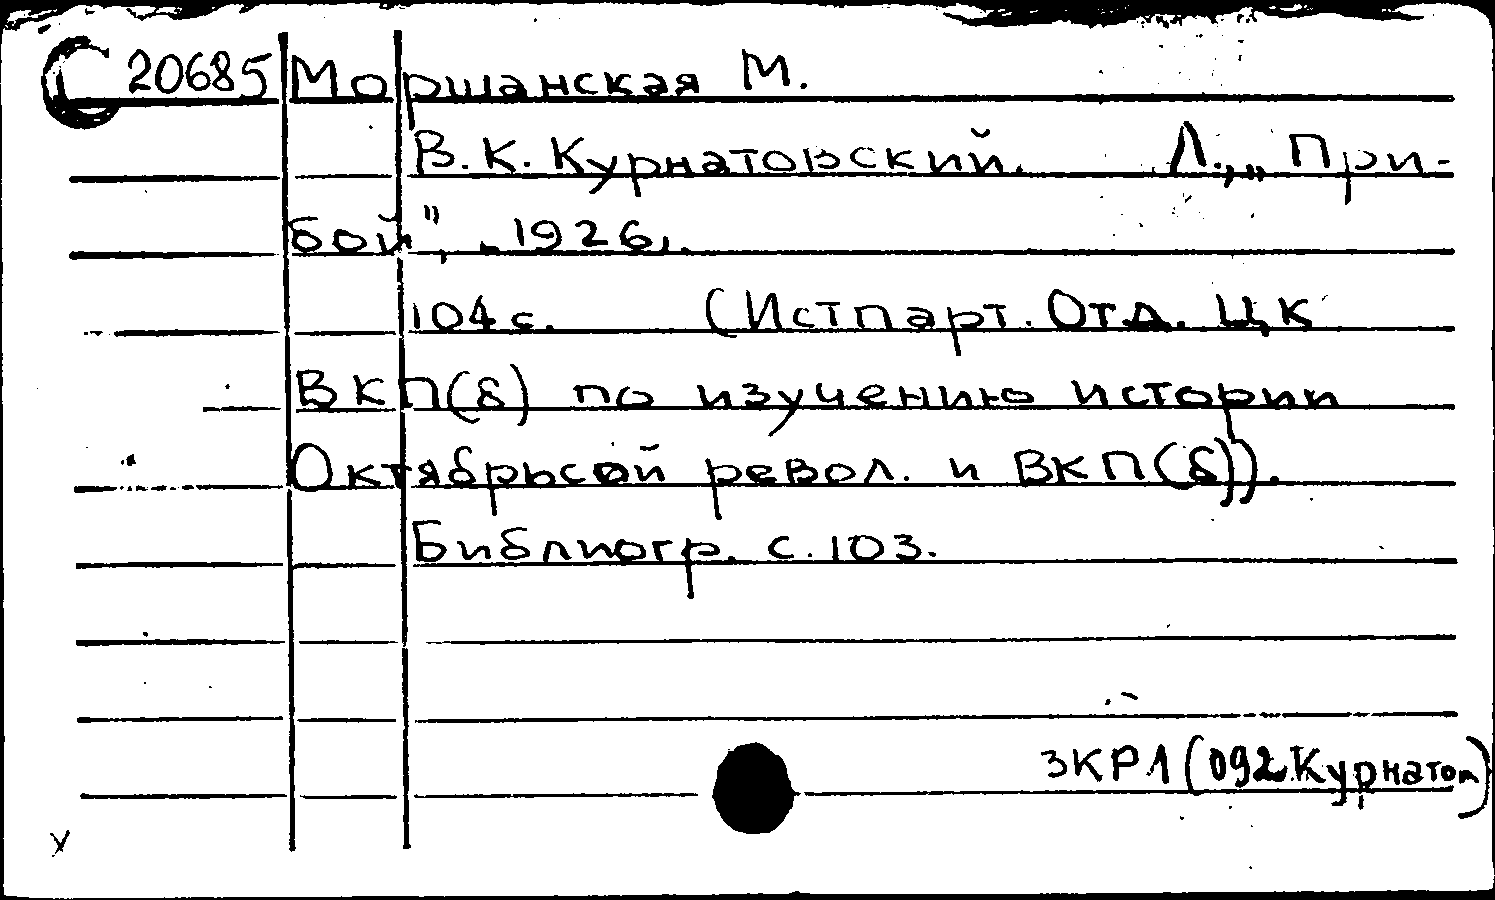 С 20685 Моршанская М.
В. К. Курнатовский. Л., „При-
бой", 1926.
104 с. (Истпарт. Отд. ЦК
ВКП(б) по изучению истории
Октябрьской револ. и ВКП(б)).
Библиогр. с. 103.
3КР1(092 Курнатов)